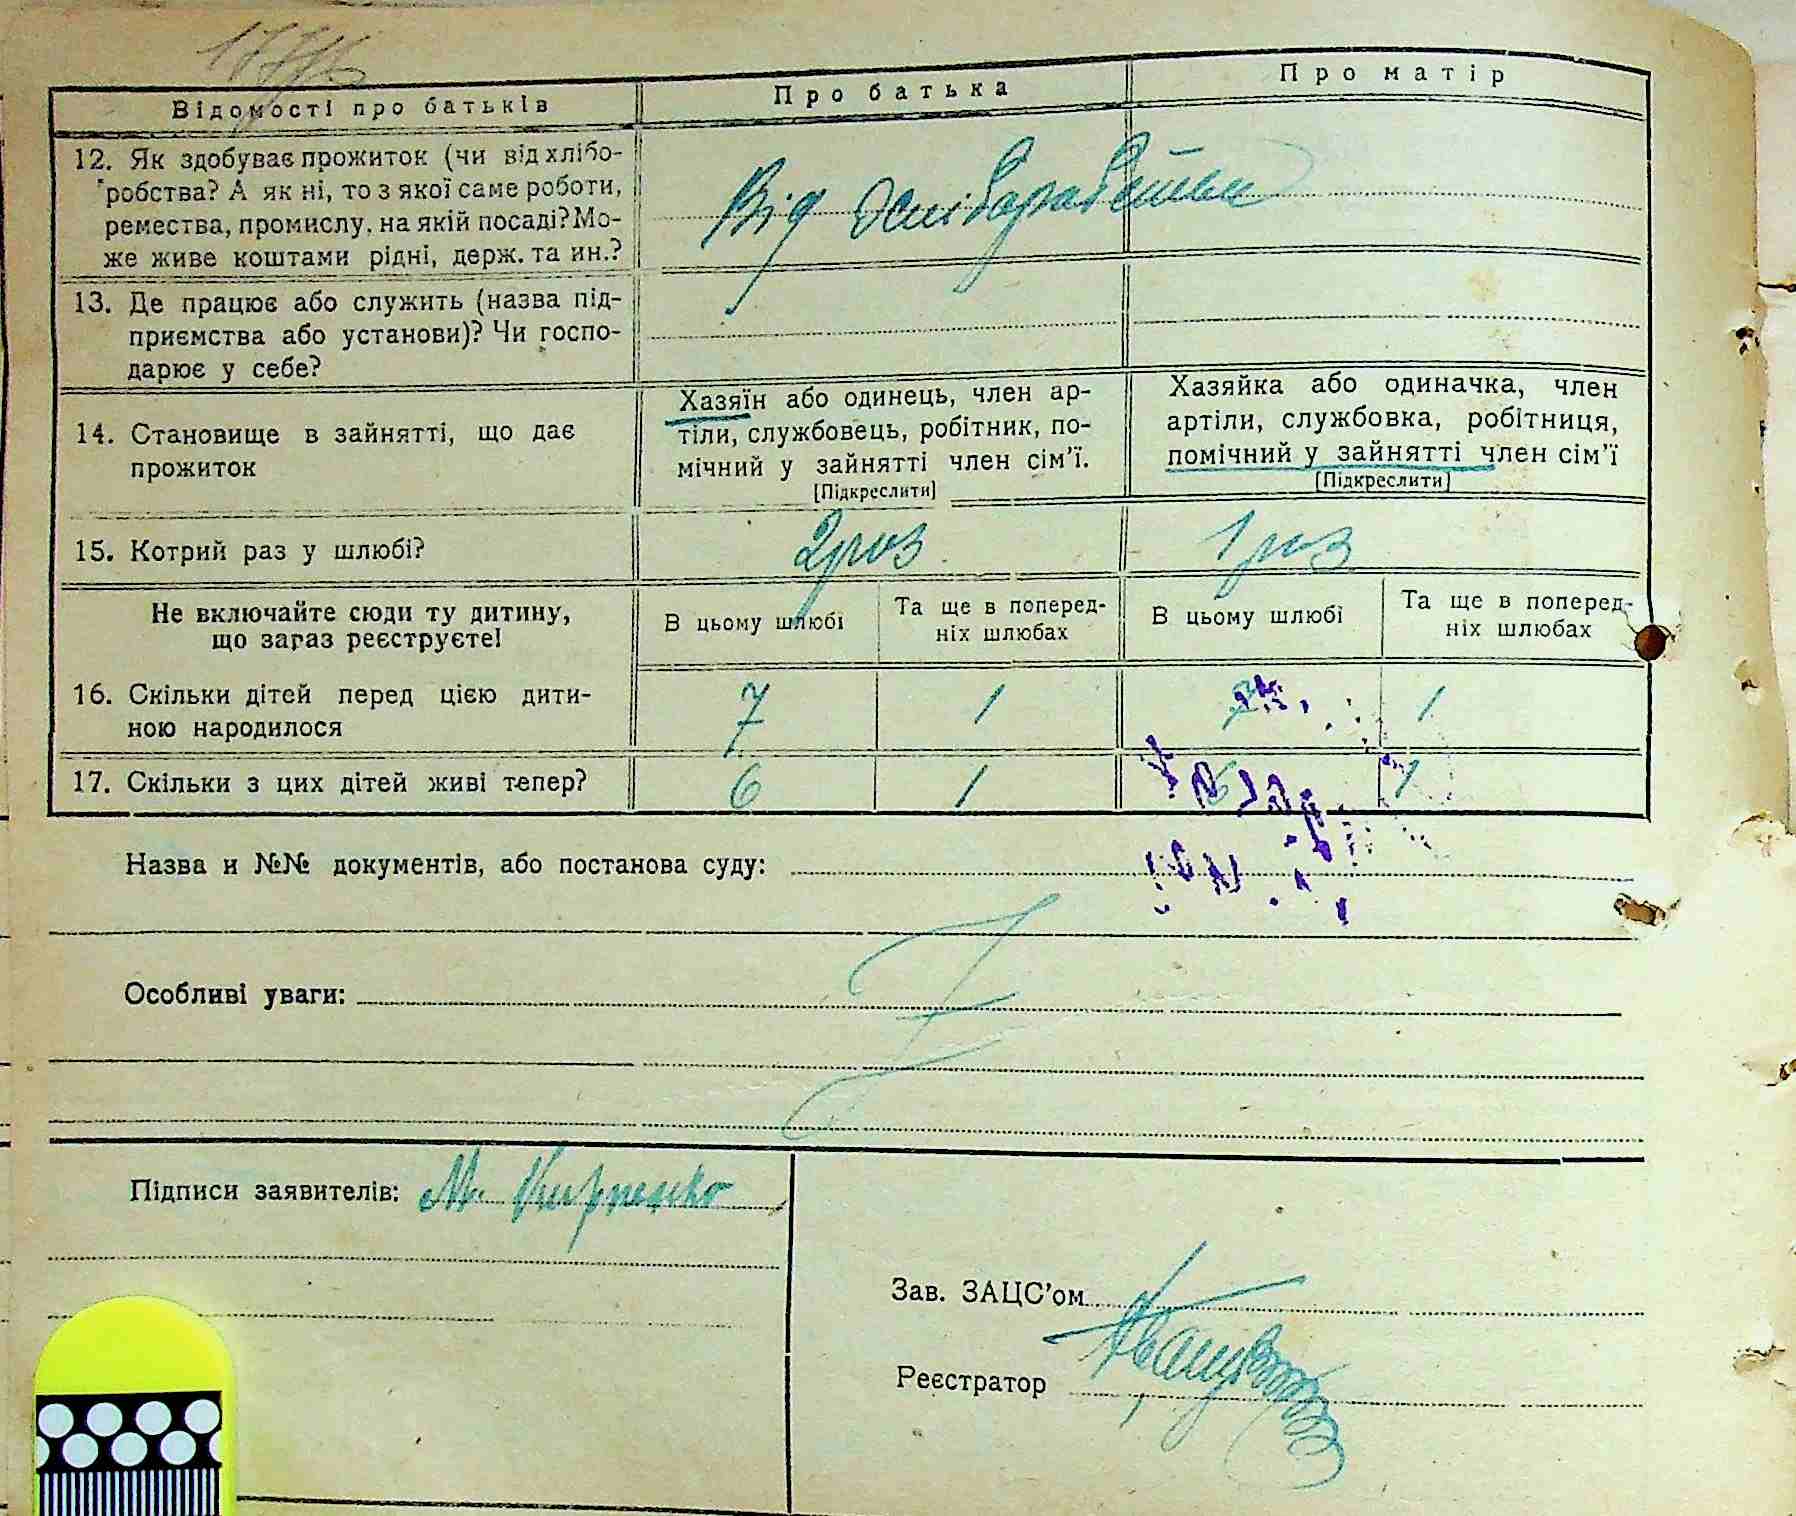 Відомості про батьків
Про батька
Про матір
12. Як здобуває прожиток (чи від хлібо-
робства? А як ні, то з якої саме роботи,
ремества, промислу, на якій посаді? Мо-
же живе коштами рідні, держ. та ин.?
Від
13. Де працює або служить (назва під-
приємства або установи)? Чи госпо-
дарює у себе?
14. Становище в зайнятті, що дає
прожиток
Хазяїн або одинець, член ар-
тіли, службовець, робітник, по-
мічний у зайнятті член сім'ї.
[Підкреслити]
Хазяйка або одиначка, член
артіли, службовка, робітниця,
помічний у зайнятті член сім'ї
[Підкреслити]
15. Котрий раз у шлюбі?
2 раз
1 раз
Не включайте сюди ту дитину,
що загаз реєструєте!
В цьому шлюбі
Та ще в поперед-
ніх шлюбах
В цьому шлюбі
Та ще в поперед-
ніх шлюбах
16. Скільки дітей перед цією дити-
ною народилося
7
1
7
1
17. Скільки з цих дітей живі тепер?
6
1
6
1
Назва и №№ документів, або постанова суду:
Особливі уваги:
Підписи заявителів: М. Кирпенко
Зав. ЗАЦС'ом
Реєстратор